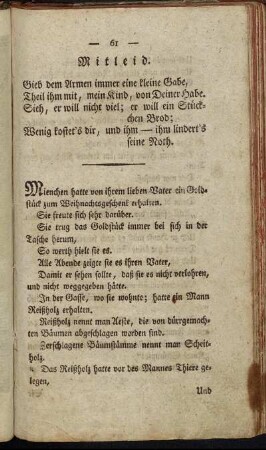 — 61 —
Mitleid.
Gieb dem Armen immer eine kleine Gabe,
Theil ihm mit, mein Kind, von Deiner Habe.
Sieh, er will nicht viel; er will ein Stück-
chen Brod;
Wenig kostet's dir, und ihm — ihm lindert's
seine Noth.
Mienchen hatte von ihrem lieben Vater ein Gold-
stück zum Weihnachtsgeschenk erhalten.
Sie freute sich sehr darüber.
Sie trug das Goldstück immer bei sich in der
Tasche herum,
So werth hielt sie es.
Alle Abende zeigte sie es ihren Vater,
Damit er sehen sollte, daß sie es nicht verlohren,
und nicht weggegeben hätte.
In der Gasse, wo sie wohnte; hatte ein Mann
Reißholz erhalten.
Reißholz nennt man Aeste, die von dürrgemach-
ten Bäumen abgeschlagen worden sind.
Zerschlagene Baumstämme nennt man Scheit-
holz.
Das Reißholz hatte vor des Mannes Thüre ge-
legen,
Und